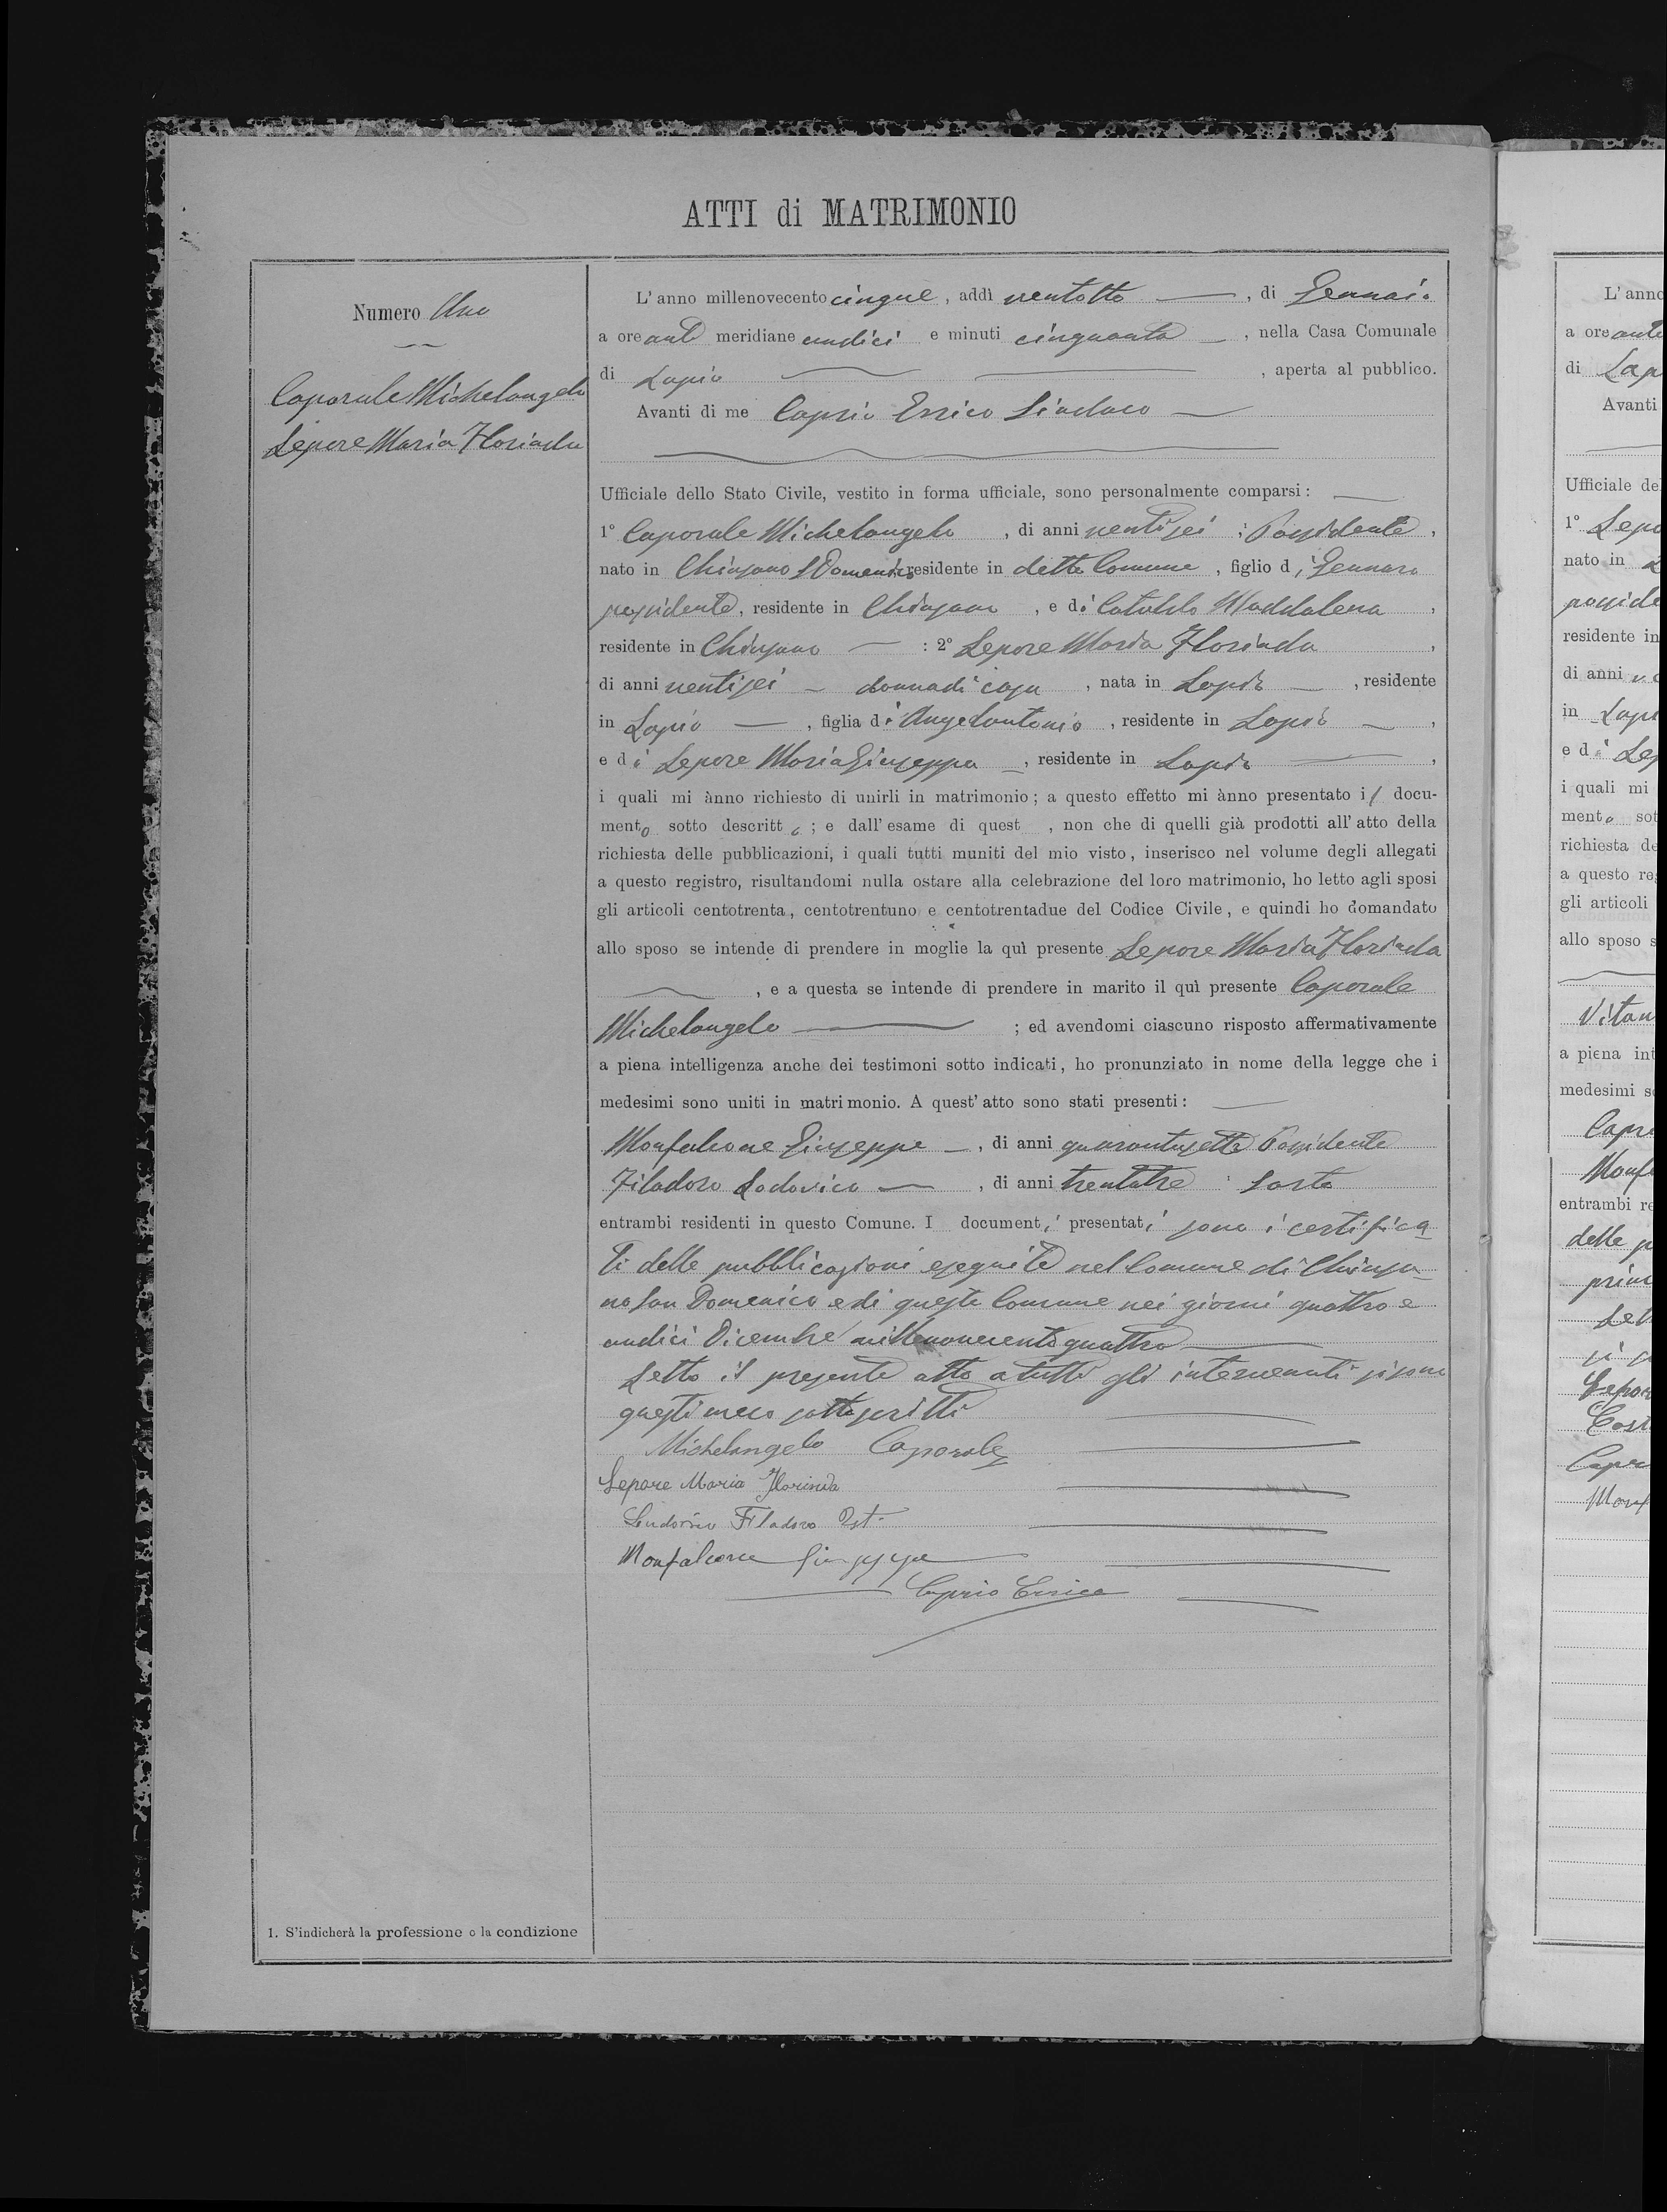 ATTI di MATRIMONIO
Numero Uno
Caporale Michelangelo
Lepore Maria Florinda
1. S'indicherà la professione o la condizione
L'anno millenovecento cinque, addì ventotto, di Gennaio
a ore ante meridiane undici e minuti cinquanta, nella Casa Comunale
di Lapio, aperta al pubblico.
Avanti di me Caprio Errico Sindaco
Ufficiale dello Stato Civile, vestito in forma ufficiale, sono personalmente comparsi:
1° Caporale Michelangelo, di anni ventisei; Possidente,
nato in Chiusano S Domenico residente in detto Comune, figlio di Gennaro
possidente, residente in Chiusano, e di Catuldo Maddalena,
residente in Chiusano: 2° Lepore Maria Florinda,
di anni ventisei donna di casa, nata in Lapio, residente
in Lapio, figlia di Angelantonio, residente in Lapio,
e di Lepore Maria Giuseppa, residente in Lapio,
i quali mi ànno richiesto di unirli in matrimonio; a questo effetto mi ànno presentato il docu-
mento sotto descritto; e dall'esame di quest, non che di quelli già prodotti all'atto della
richiesta delle pubblicazioni, i quali tutti muniti del mio visto, inserisco nel volume degli allegati
a questo registro, risultandomi nulla ostare alla celebrazione del loro matrimonio, ho letto agli sposi
gli articoli centotrenta, centotrentuno e centotrentadue del Codice Civile, e quindi ho domandato
allo sposo se intende di prendere in moglie la quì presente Lepore Maria Florinda
, e a questa se intende di prendere in marito il quì presente Caporale
Michelangelo; ed avendomi ciascuno risposto affermativamente
a piena intelligenza anche dei testimoni sotto indicati, ho pronunziato in nome della legge che i
medesimi sono uniti in matrimonio. A quest'atto sono stati presenti:
Monfalcone Giuseppe, di anni quarantasette Possidente
Filadoro Lodovico, di anni trentatre: Sarto
entrambi residenti in questo Comune. I documenti presentati sono i certifica
ti delle pubblicazioni eseguite nel Comune di Chiusa-
no San Domenico e di questo Comune nei giorni quattro e
undici Dicembre millenovecentoquattro
Letto il presente atto a tutti gli intervenuti si sono
questi meco sottoscritti
Michelangelo Caporale
Lepore Maria Florinda
Lodovico Filadoro Tst.
Monfalcone Giuseppe
Caprio Errico
L'anno
a ore ante
di Lap
Avanti
Ufficiale de
1° Lepo
nato in
posside
residente in
di anni
in Lapi
e di Lep
i quali mi
mento sot
richiesta de
a questo re
gli articoli
allo sposo s
Vitan
a piena int
medesimi s
Capr
Monf
entrambi re
delle p
prim
Let
si s
Lepor
Capr
Monf